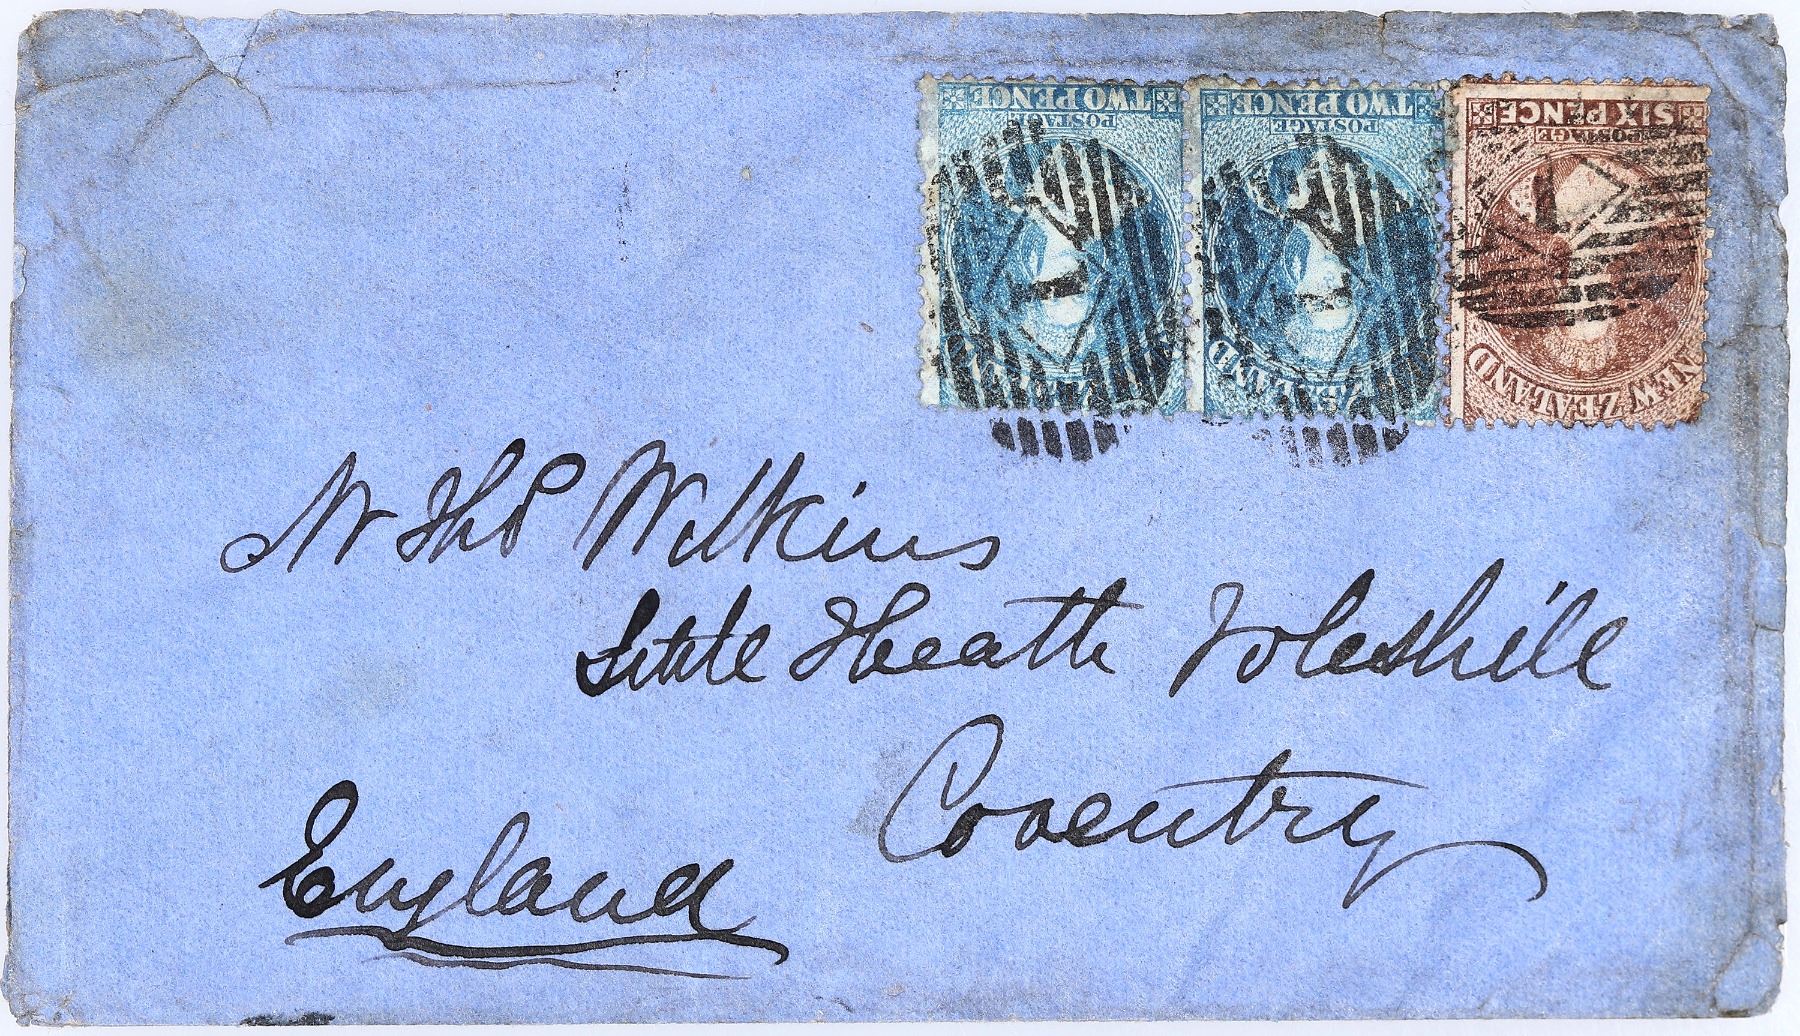 TWO PENCE TWO PENCE SIX PENCE
POSTAGE POSTAGE POSTAGE
1 1 1
ZEALAND ZEALAND NEW ZEALAND
Mr Thos Wilkins
Little Heath Foleshill
Coventry
England